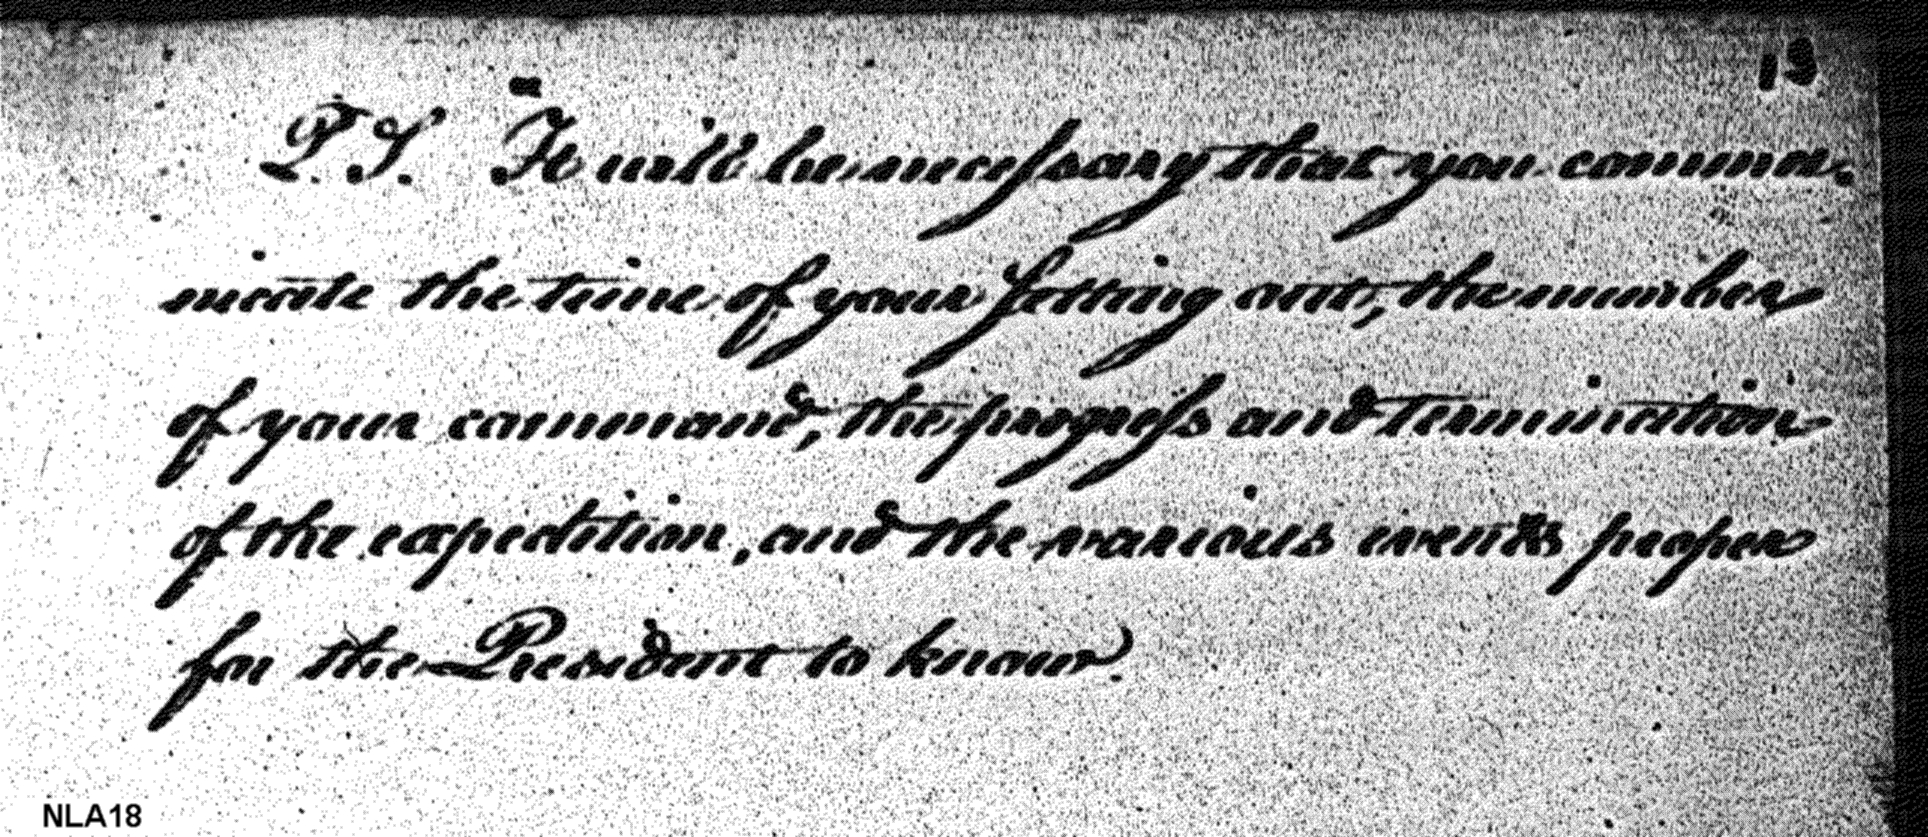 13
P.S. It will be necessary that you commu-
nicate the time of your setting out, the number
of your command, the progress and termination
of the expedition, and the various events proper
for the President to know.
NLA18